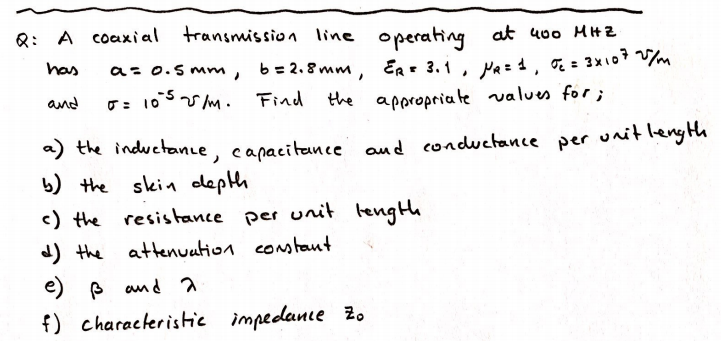 Q: A coaxial transmission line operating at 400 MHZ
has a = 0.5 mm, b = 2.8 mm, εR = 3.1, μR = 1, σc = 3x10⁷ ℧/m
and σ = 10⁻⁵ ℧/m. Find the appropriate values for;
a) the inductance, capacitance and conductance per unit length
b) the skin depth
c) the resistance per unit length
d) the attenuation constant
e) β and λ
f) characteristic impedance Z₀